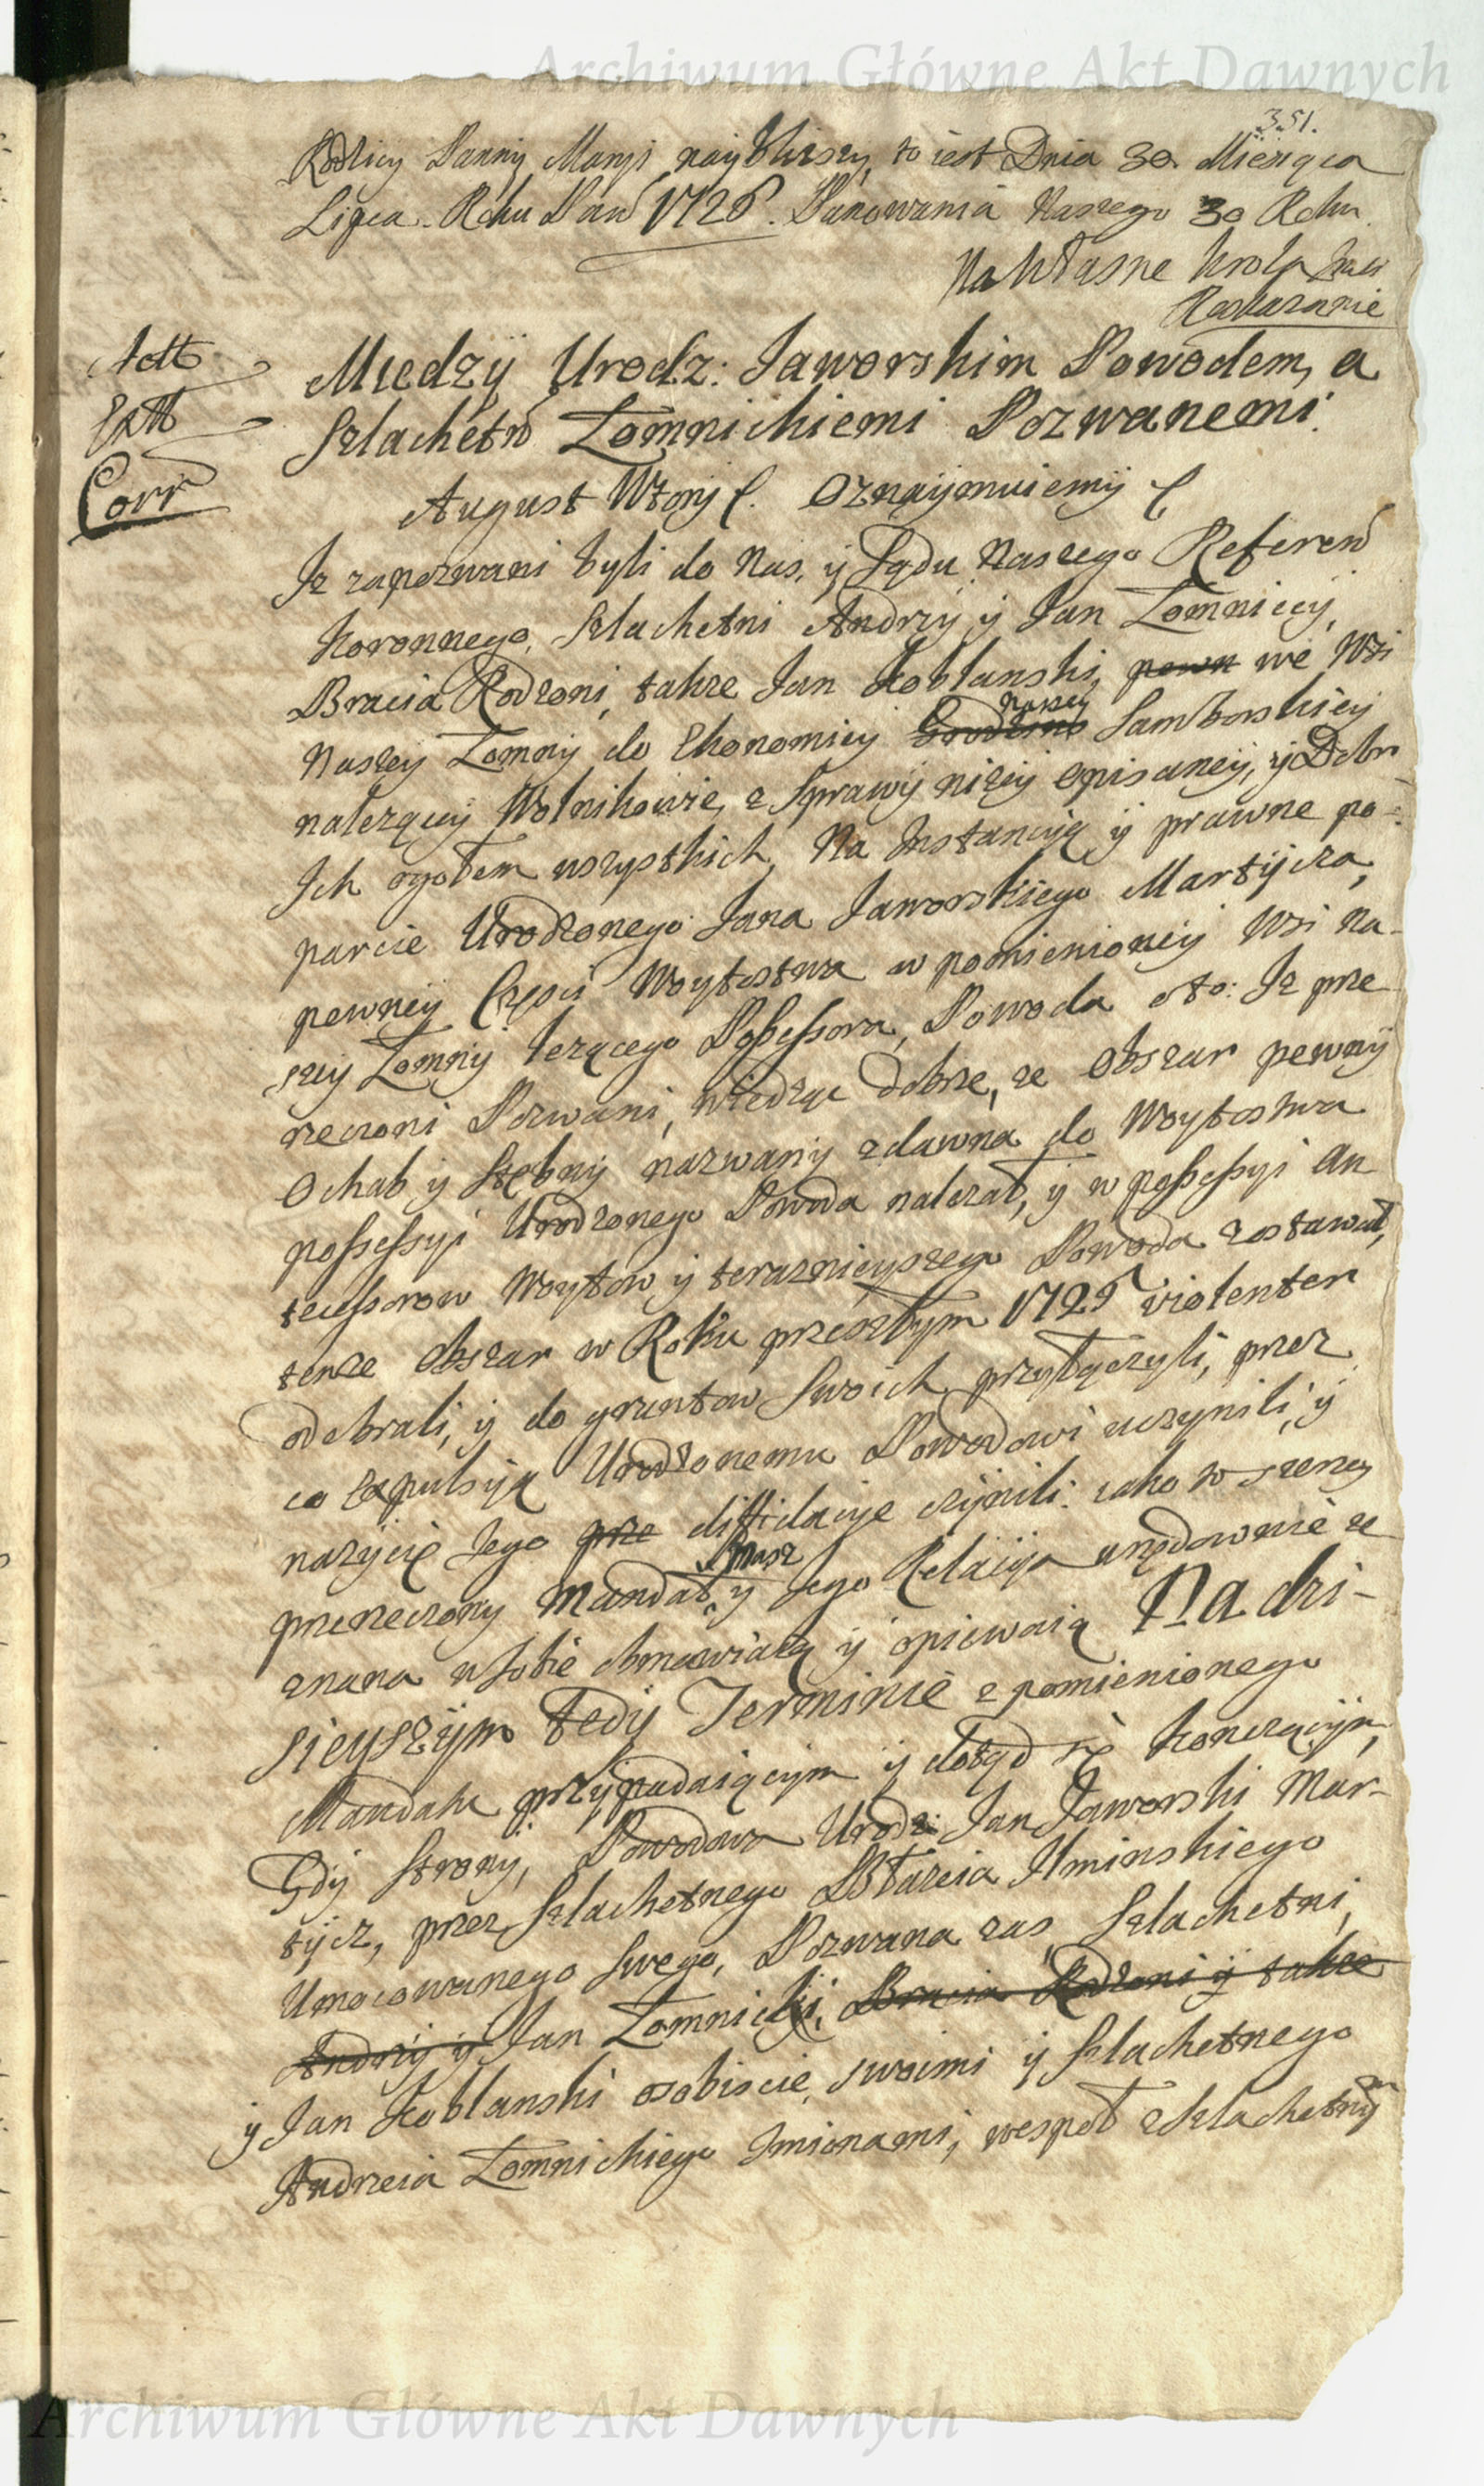 Archiwum Główne Akt Dawnych
351.
Rodzicy Panny Maryi nayblizszy, to iest Dnia 30 Miesiąca
Lipca. Roku Pań 1726. Panowania Naszego 30 Roku.
Na Własne Krola
Roskazanie
Między Urodz: Jaworskim Powodem, a
Szlachetn Łomnickiemi Pozwanemi.
Corr
August Wtory &. Oznaymuiemy &
Iz zapozwani byli do Nas, y Sądu Naszego Referen
Koronnego, Szlachetni Andrzy y Jan Łomniccy,
Bracia Rodzoni, takze Jan Koblanski, pewn we Wsi
Naszey
Naszey Łomny do Ekonomiey Samborskiey
nalezący Wolnikowie, z Sprawy nizey opisaney, y Dobr
Ich ogołem wszystkich, Na Instancyą y prawne po-
parcie Urodzonego Jana Jaworskiego Martycza,
pewney Części Woytostwa w pomienioney Wsi Na-
szey Łomny lezącego Possessora, Powoda oto: Iz prze
rzeczoni Pozwani, wiedząc dobrze, ze Obszar pewny
Ochab y Stębny nazwany zdawna do Woytostwa
possessyi Urodzonego Powoda nalezał, y w possessyi An
tecessorow Woytow y teraznieyszego Powoda zostawał,
tenze Obszar w Roku przeszłym 1725 violenter
odebrali, y do gruntow Swoich przyłączyli, przez
co expulsyą Urodzonemu Powodowi uczynili, y
nazycie Jego prze diffidacye czynili. iako to szerzey
Nasz
przerzeczony Mandat y Jego Relacya urzędownie ze
znana w sobie obmawiaią y opiewaią Na dzi-
sieyszym tedy Terminie z pomienionego
Mandatu przypadaiącym y dotąd się konczącym,
Gdy Strony, Powodowa Urodz: Jan Jaworski Mar-
tycz, przez Szlachetnego Błazeia Ilminskiego
Umocowanego Swego, Pozwana zas Szlachetni,
Andrzy y Jan Łomnicki, Bracia Rodzoni y takze
y Jan Koblanski osobiscie, swoimi y Szlachetnego
Andrzeia Łomnickiego Imionami, wespoł z Szlachetnym
Archiwum Główne Akt Dawnych